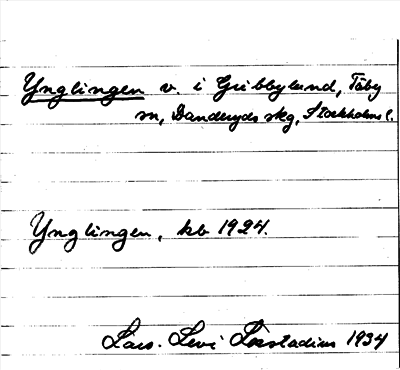 Ynglingen v. i Gribbylund, Täby
sn, Danderyds skg, Stockholms l.
Ynglingen, kb 1924.
Lars-Levi Læstadius 1934